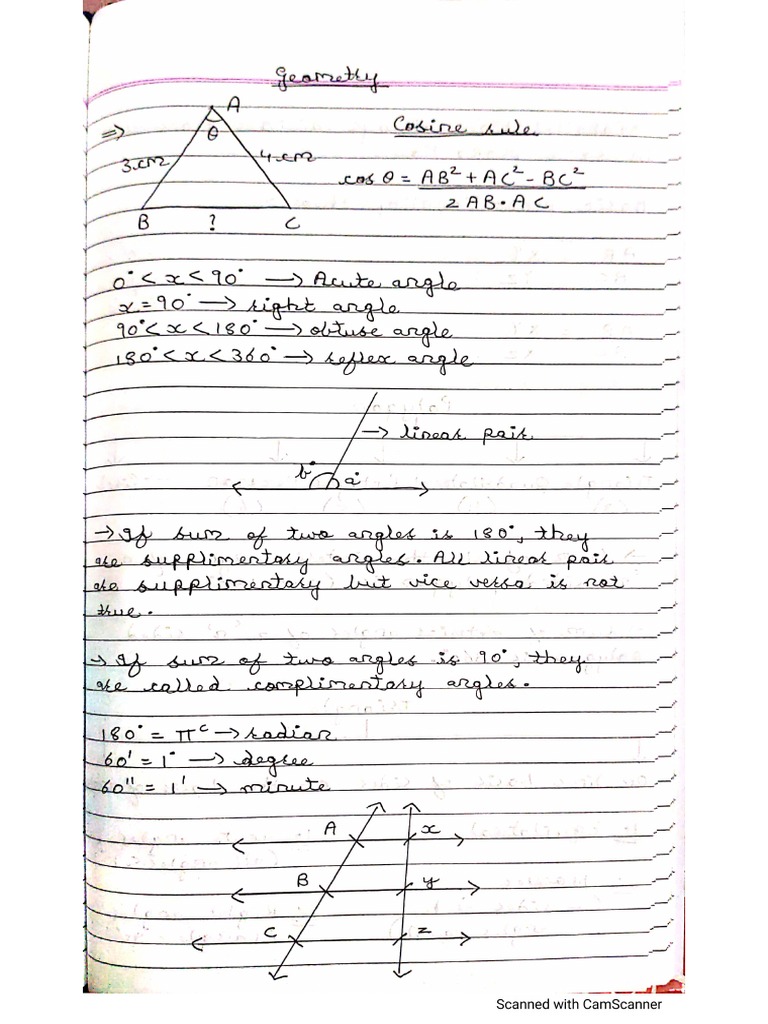 Geometry
A
⇒ θ
Cosine rule
3 cm 4 cm
cos θ = AB² + AC² - BC² / 2 AB·AC
B ? C
0° < x < 90° → Acute angle
x = 90° → right angle
90° < x < 180° → obtuse angle
180° < x < 360° → reflex angle
→ linear pair
b° a°
→ If sum of two angles is 180°, they
are supplimentary angles. All linear pair
are supplimentary but vice versa is not
true.
→ If sum of two angles is 90°, they
are called complimentary angles.
180° = πᶜ → radian
60' = 1° → degree
60'' = 1' → minute
A x
B y
C z
Scanned with CamScanner